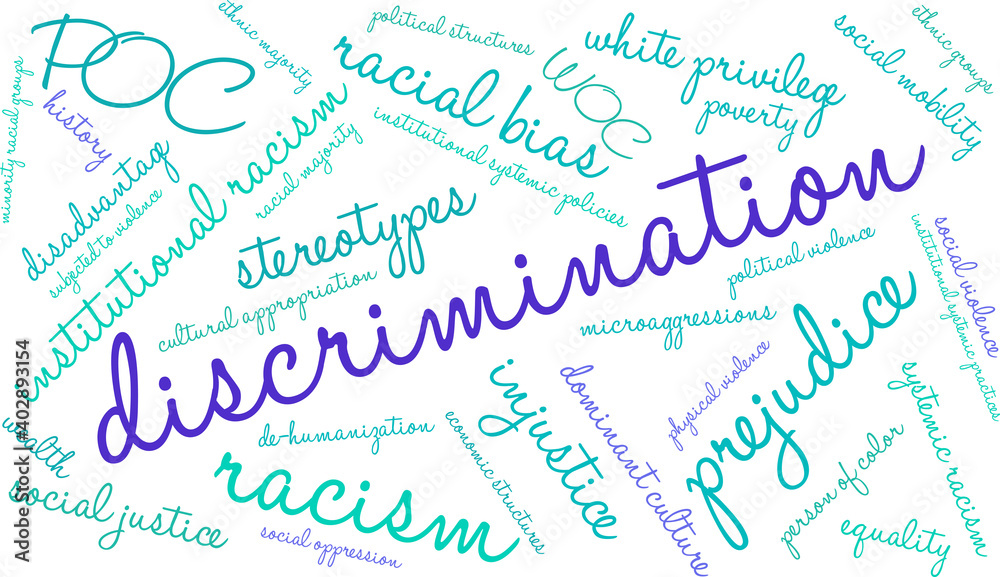 POC
political structures
ethnic majority
racial bias
white privilege
WOC
poverty
social mobility
ethnic groups
minority racial groups
history
disadvantage
subjected to violence
institutional racism
racial majority
institutional systemic policies
stereotypes
cultural appropriation
discrimination
political violence
microaggressions
social violence
institutional systemic practices
prejudice
physical violence
dominant culture
injustice
economic structures
de-humanization
racism
social oppression
wealth
social justice
person of color
equality
systemic racism
Adobe Stock | #402893154
Adobe Stock